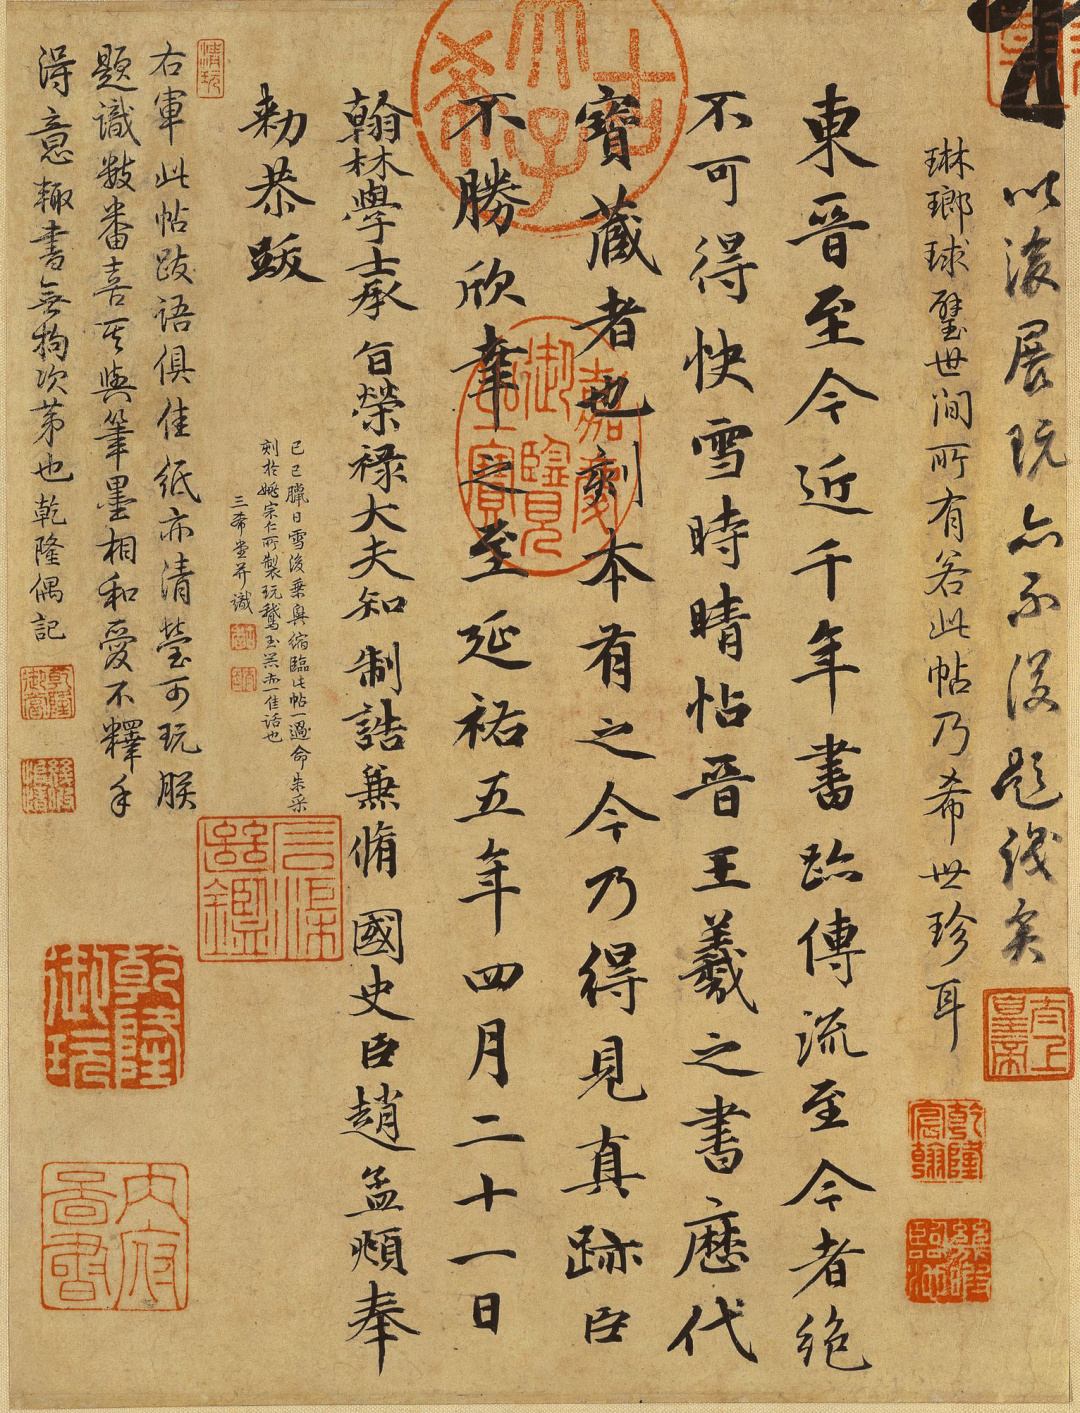 以後展玩亦不復題識矣
太上皇帝
琳瑯球璧世間所有若此帖乃希世珍耳
乾隆宸翰
幾暇臨池
東晉至今近千年書跡傳流至今者絕
不可得快雪時晴帖晉王羲之書歷代
寶藏者也刻本有之今乃得見真跡臣
不勝欣幸之至延祐五年四月二十一日
翰林學士承旨榮祿大夫知制誥兼脩國史臣趙孟頫奉
勑恭跋
古希天子
嘉慶御覽之寶
己巳臘日雪後乘輿縮臨此帖一過命朱采
刻於姚宗仁所製玩鵞玉器亦一佳話也
三希堂并識
清玩
右軍此帖跋語俱佳紙亦清瑩可玩朕
題識數番喜其與筆墨相和愛不釋手
得意輒書無拘次第也乾隆偶記
幾暇怡情
乾隆御玩
內府圖書